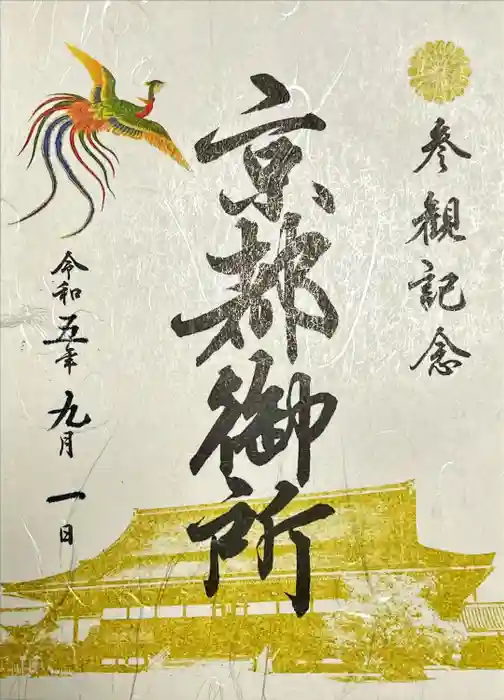 参観記念
京都御所
令和五年九月一日